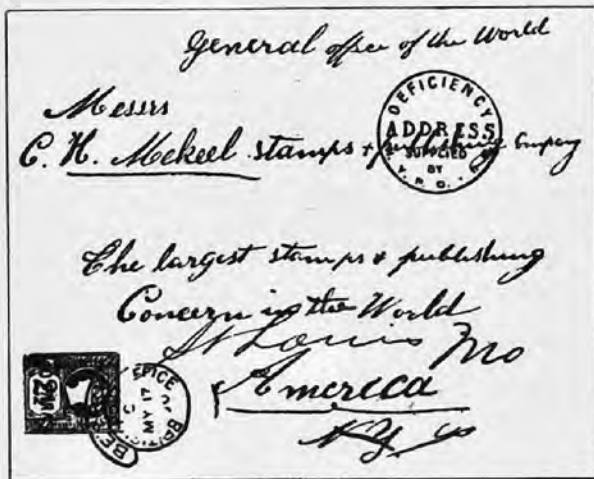 General office of the World
Messrs
C. H. Mekeel stamps & publishing Company
DEFICIENCY
ADDRESS
SUPPLIED
BY
N.Y. P.O.
The largest stamps & publishing
Concern in the World
St Louis Mo
America
NY
MY 17